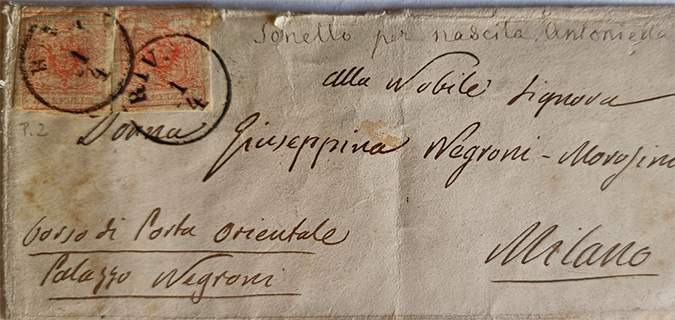 Sonetto per nascita Antonietta
RIV
1
4
RIV
1
4
P. 2
alla Nobile Signora
Donna Giuseppina Negroni - Morosini
Corso di Porta Orientale
Palazzo Negroni
Milano